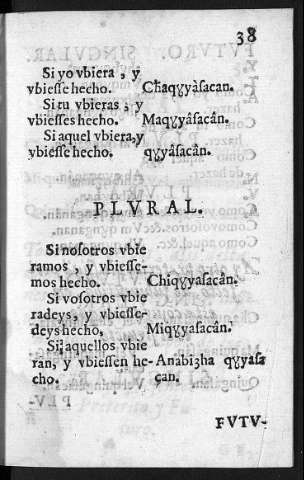 38
Si yo vbiera , y
vbiesse hecho. Chaqɣyâsacan.
Si tu vbieras , y
vbiesses hecho. Maqɣyâsacân.
Si aquel vbiera,y
vbiesse hecho. qɣyâsacân.
PLVRAL.
Si nosotros vbie
ramos , y vbiesse-
mos hecho. Chiqɣyasacân.
Si vosotros vbie
radeys, y vbiesse-
deys hecho, Miqɣyasacân.
Si aquellos vbie
ran, y vbiessen he- Anabiȝha qɣyasa
cho. can.
FVTV-